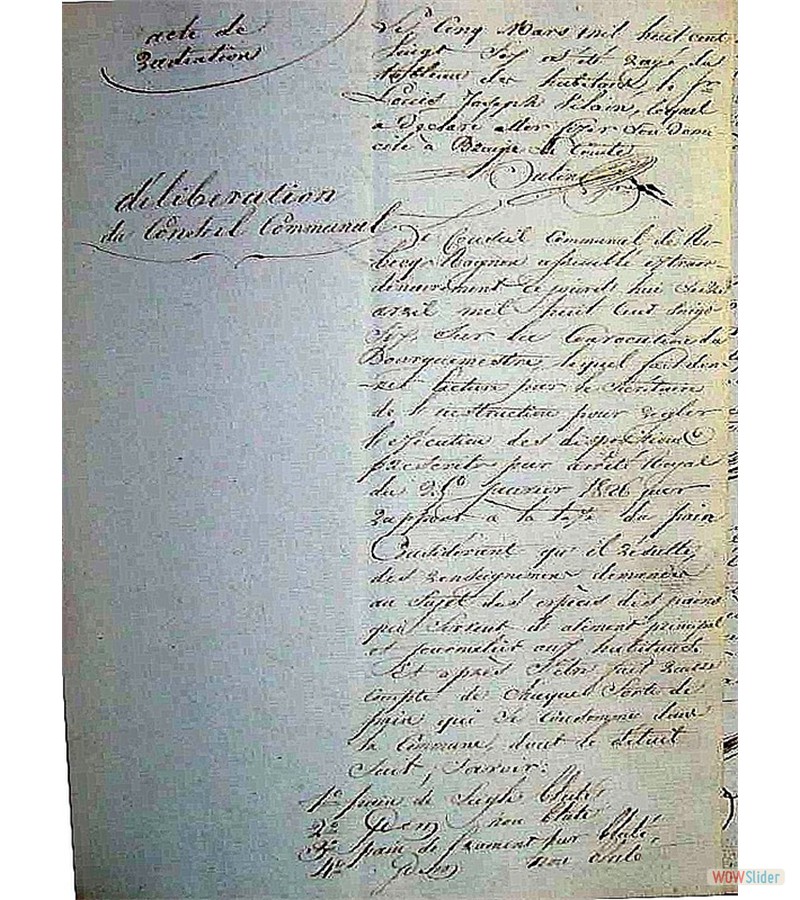 acte de
radiation
Le Cinq Mars mil huit cent
vingt six a été rayé du
tableau des habitans le Sr
Louis Joseph lequel
a déclaré aller fixer son domi
cile à Braine le Comte
déliberation
du Conseil Communal
Le Conseil Communal de Re-
becq Rognon assemblé extraor-
dinairement ce jourd'hui seize
avril mil huit cent vingt
six, sur la Convocation du
Bourguemestre, lequel fait don-
ner lecture par le secretaire
de l'instruction pour regler
l'exécution des dispositions
prescrites par arrêté Royal
du 25e janvier 1826 par
rapport à la taxe du pain
Considérant qu'il résulte,
des renseignemens demandés
au sujet des espèces des pains
qui servent d'aliment principal
et journalier aux habitants.
Et après s'être fait rendre
compte de chaque sorte de
pain qui se consomme dans
la Commune, dont le détail
suit, savoir:
1º pain de seigle bluté
2º idem non bluté
3º pain de froment pur bluté,
4º idem non bluté
WOWSlider